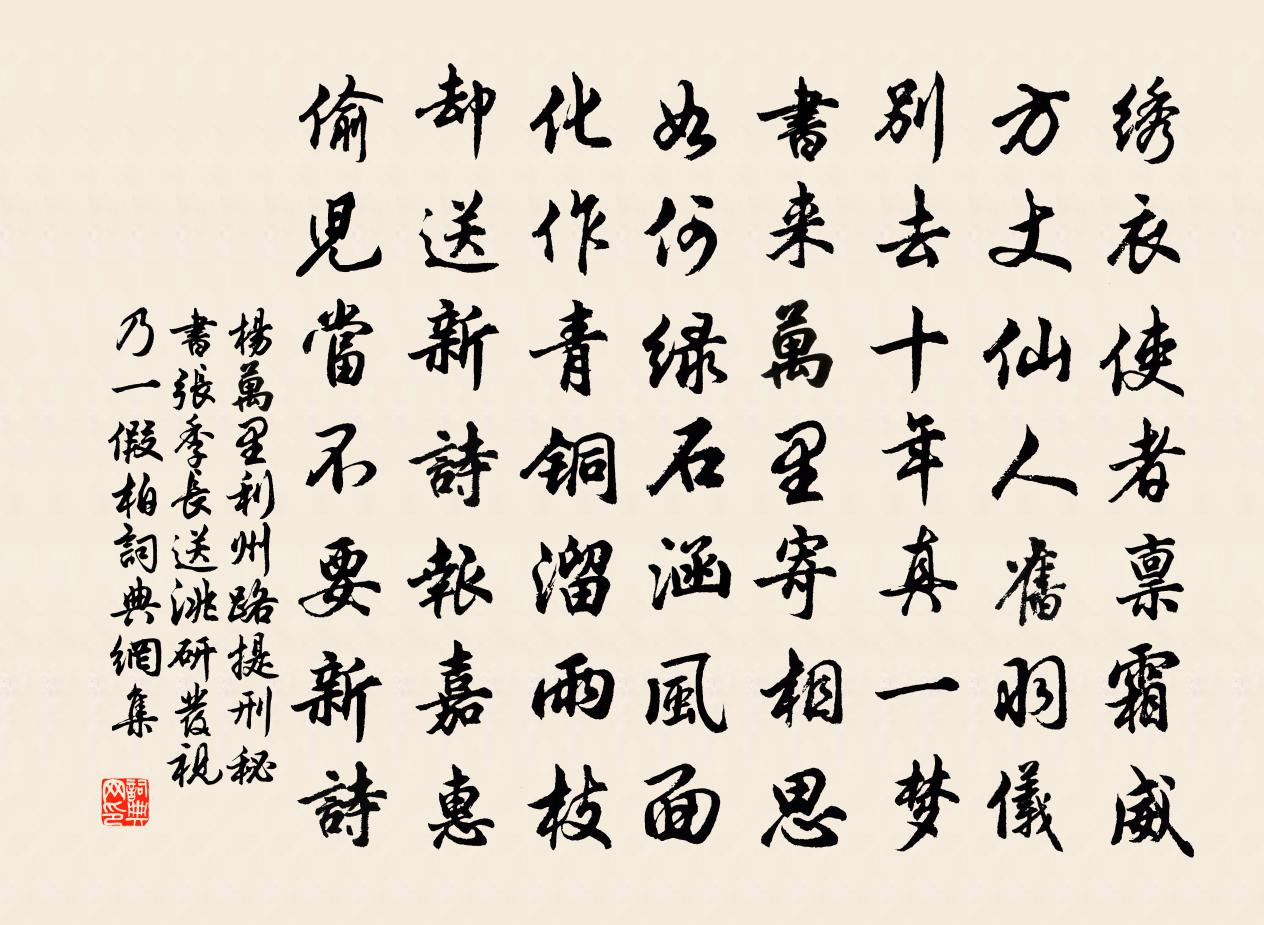 绣衣使者禀霜威
方丈仙人旧羽儀
别去十年真一梦
書来萬里寄相思
如何緑石涵風面
化作青銅溜雨枝
却送新詩報嘉惠
偷児當不要新詩
楊萬里利州路提刑秘
書張季長送洮研發視
乃一假柏詞典網集
詞典网印